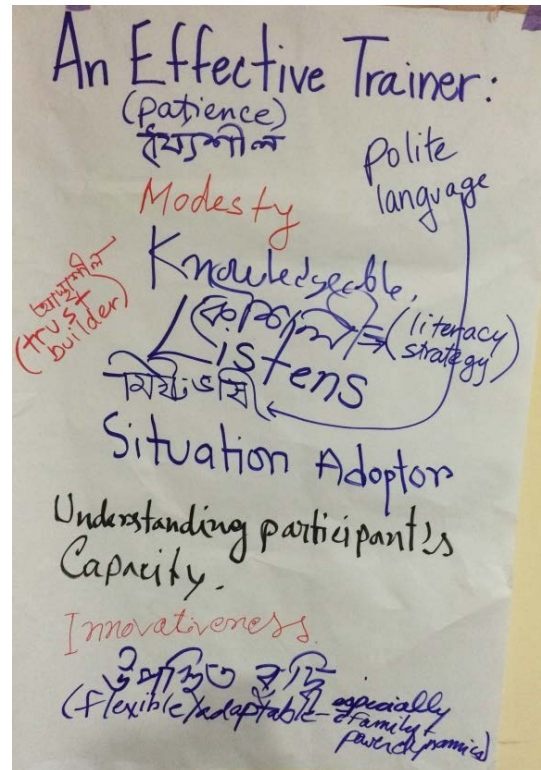 An Effective Trainer:
(patience)
ধৈর্য্যশীল
Polite
language
Modesty
Knowledgeable,
(trust
builder)
(literacy
strategy)
Listens
Situation Adoptor
Understanding participant's
Capacity.
Innovativeness.
উপস্থিত বুদ্ধি
(flexible/adaptable - especially
family +
power dynamics)